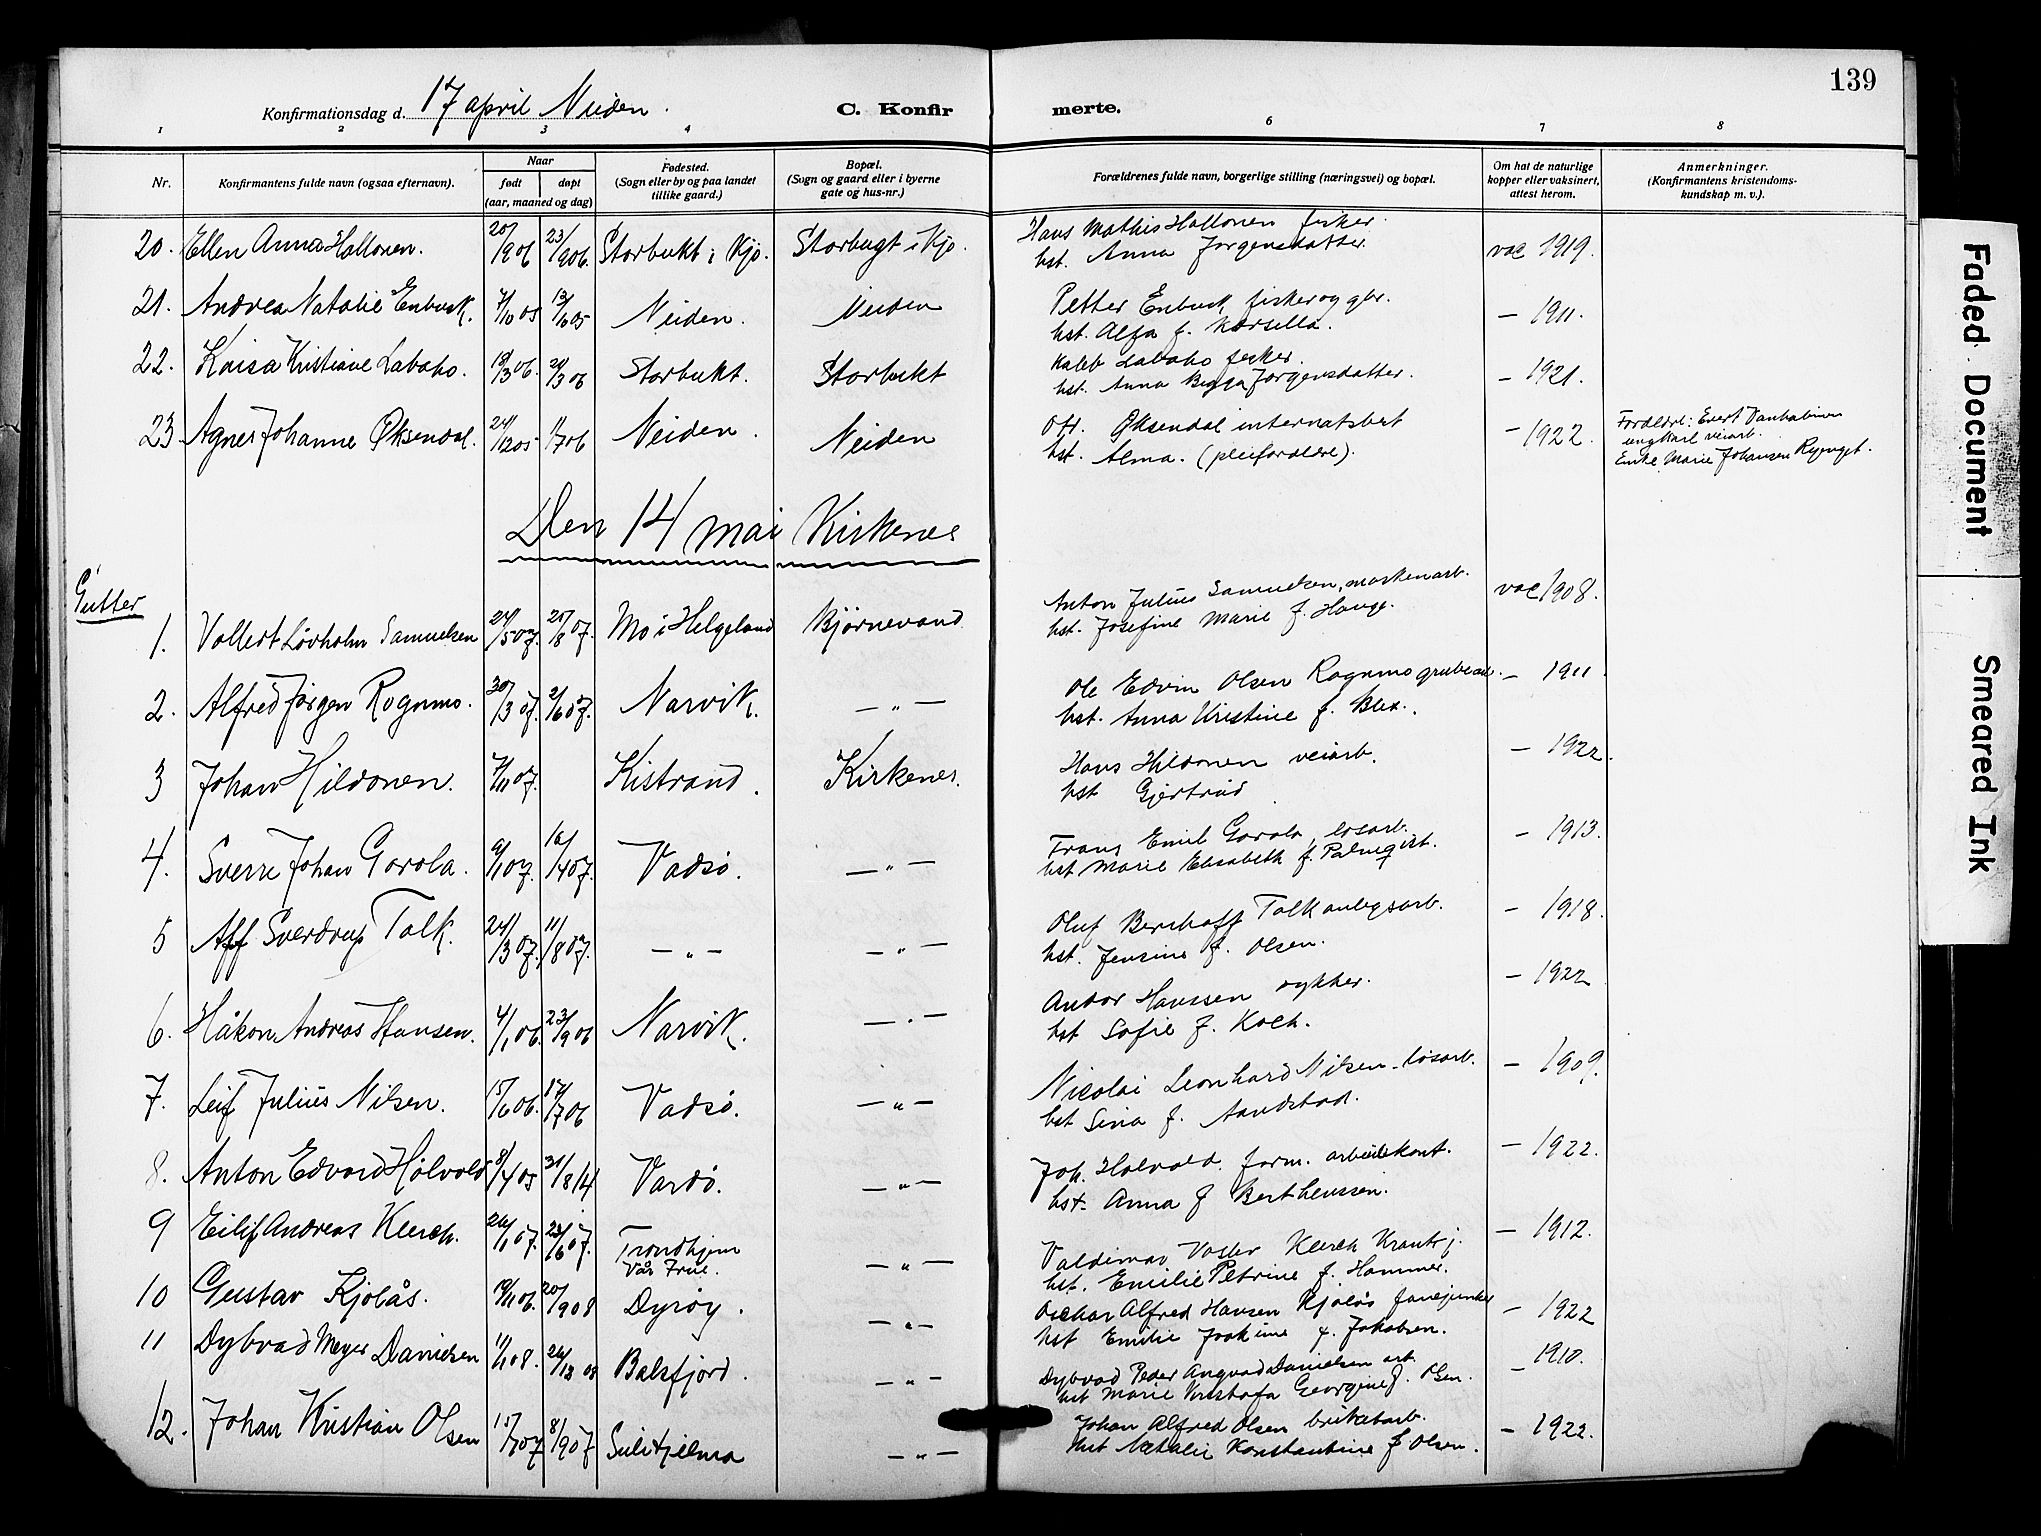 139
Konfirmationsdag d. 17 april Neiden.
C. Konfirmerte.
1 2 3 4 6 7 8
Nr.
Konfirmantens fulde navn (ogsaa efternavn).
Naar
født døpt
(aar, maaned og dag)
Fødested.
(Sogn eller by og paa landet
tillike gaard.)
Bopæl.
(Sogn og gaard eller i byerne
gate og hus-nr.)
Forældrenes fulde navn, borgerlige stilling (næringsvei) og bopæl.
Om hat de naturlige
kopper eller vaksinert,
attest herom.
Anmerkninger.
(Konfirmantens kristendoms-
kundskap m. v.).
20. Ellen Anna Hallonen. 20/906 23/906. Storbukt i Kjø. Storbugt i Kjø. Hans Mathis Hallonen fisker.
hst. Anna Jørgensdatter. vac 1919.
21. Andrea Natalie Enbusk. 7/10 05 13/ 05 Neiden. Neiden Petter Enbusk fisker og gbr.
hst. Alfa f. Karsella. — 1911.
22. Kaisa Kristiane Labaho. 19/3 06. 21/3 06 Storbukt. Storbukt Kaleb Labaho fisker.
hst. Anna Jørgensdatter. — 1921.
23 Agnes Johanne Øksendal. 24/12 05 1/7 06 Neiden. Neiden Øksendal internatsbest
hst. Alma. (pleiforældre). — 1922. Forældre: Evert
ungkarl veiarb.
Marie Johansen
Den 14 mai Kirkenes
Gutter
1. Vollert Løvholm Samuelsen 24/5 07. 25/8 07. Mo i Helgeland Bjørnevand Anton Julius Samuelsen, maskenarb.
hst. Josefine Marie f. Hauge. vac 1908.
2. Alfred Jørgen Rognmo. 30/3 07. 2/6 07. Narvik. — „ — Ole Edvin Olsen Rognmo grubearb.
hst. Anna Kristine f. Blix. — 1911
3 Johan Hildonen. 7/11 07. Kistrand. Kirkenes. Hans Hildonen veiarb.
hst Gjertrud — 1922.
4. Sverre Johan Gorola. 9/1 07. 10/4 07. Vadsø. — „ — Frans Emil Gorola, løsarb.
hst Marie Elisabeth f. Palmqist. — 1913.
5 Aff Sverdrup Talk. 24/3 07. 11/8 07. — „ — — „ — Oluf Berchoff Talk anlegsarb.
hst. Jensine f. Olsen. — 1918.
6. Håkon Andreas Hansen. 4/1 06. 23/9 06 Narvik. — „ — Andor Hanssen rykker.
hst Sofie f. Koch. — 1922
7. Leif Julius Nilsen. 15/6 06. 17/7 06 Vadsø. — „ — Nicolai Leonhard Nilsen - løsarb.
hst Sina f. Aandstad. — 1909.
8. Anton Edvard Holvold 8/4 05 31/8 14 Vardø. — „ — Joh. Holvold form. arbeidskont.
hst. Anna f Berthenssen. — 1922.
9 Eilif Andreas Klerck. 26/1 07. 23/6 07. Trondhjem
Vår Frue. — „ — Valdemar Klerck
hst. Emilie Petrine f. Hammer. — 1912.
10 Gustav Kjølås. 19/11 06. 20/9 08 Dyrøy. — „ — Oschar Alfred Hansen Kjølås
hst Emilie Joakime f. Jakobsen. — 1922
11 Dybvad Meyer Danielsen 1/1 08. 26/12 08 Balsfjord. — „ — Dybvad Peder Angvad Danielsen arb.
hst Marie Kristofa Georgine f. Olsen. — 1910.
12. Johan Kristian Olsen 15/7 07 8/9 07 Sulitjelma — „ — Johan Alfred Olsen briketarb.
hst Nathalie Konstantine f Olsen. — 1922.
Faded Document
Smeared Ink